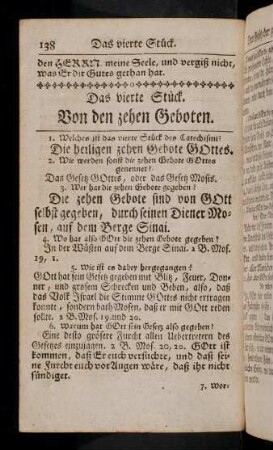 138 Das vierte Stück.
den HERRN meine Seele, und vergiß nicht,
was Er dir Gutes gethan hat.
Das vierte Stück.
Von den zehen Geboten.
1. Welches ist das vierte Stück des Catechismi?
Die heiligen zehen Gebote GOttes.
2. Wie werden sonst die zehen Gebote GOttes
genennet?
Das Gesetz GOttes, oder das Gesetz Mosis.
3. Wer hat die zehen Gebote gegeben?
Die zehen Gebote sind von GOtt
selbst gegeben, durch seinen Diener Mo-
sen, auf dem Berge Sinai.
4. Wo hat also GOtt die zehen Gebote gegeben?
In der Wüsten auf dem Berge Sinai. 2 B. Mos.
19, 1.
5. Wie ist es dabey hergegangen?
GOtt hat sein Gesetz gegeben mit Blitz, Feuer, Don-
ner, und grossem Schrecken und Beben, also, daß
das Volk Israel die Stimme GOttes nicht ertragen
konnte, sondern bath Mosen, daß er mit GOtt reden
sollte. 2 B. Mos. 19. und 20.
6. Warum hat GOtt sein Gesetz also gegeben?
Eine desto grössere Furcht allen Uebertretern des
Gesetzes einzujagen. 2 B. Mos. 20, 20. GOtt ist
kommen, daß Er euch versuchte, und daß sei-
ne Furcht euch vor Augen wäre, daß ihr nicht
sündiget.
7. Wor-